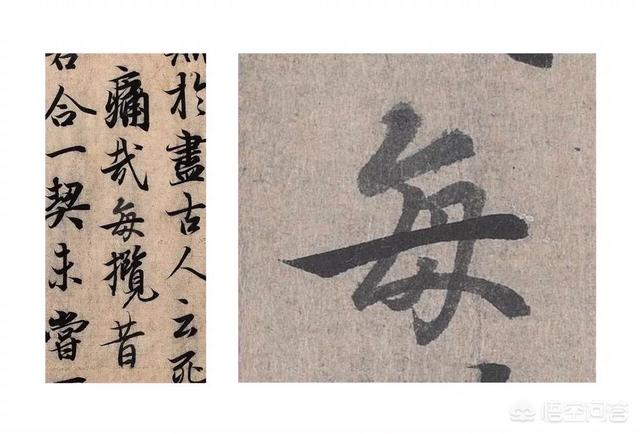 於盡古人云死
痛哉每攬昔
若合一契未嘗
每
悟空问答